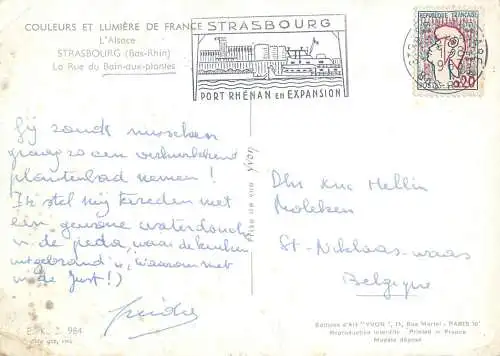 COULEURS ET LUMIÈRE DE FRANCE
L'Alsace
STRASBOURG (Bas-Rhin)
La Rue du Bain-aux-plantes
STRASBOURG
PORT RHÉNAN EN EXPANSION
REPUBLIQUE FRANÇAISE
0,20
POSTES
Gij zoudt misschien
graag zo een verkwikkend
plantenbad nemen!
Ik stel mij tevreden met
een gewone waterdouche
in de
uitgebrand", waarom niet
in de Just!)
Dhr Luc Hellin
Moleken
St-Niklaas-waas
Belgique
Prise de vue YVON
E. K. 2. 984
Editions d'Art "YVON", 15, Rue Martel - PARIS 10e
Reproduction interdite Printed in France
Modèle déposé